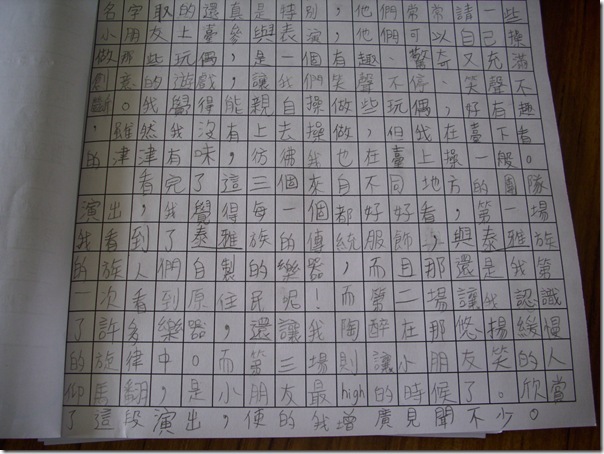 名字取的還真是特別，他們常常請一些
小朋友上臺參與表演，他們可以自己操
做那些玩偶，是一個有趣、驚奇又充滿
創意的遊戲，讓我們笑聲不停、笑聲不
斷。我覺得能親自操做些玩偶，好有趣
，雖然我沒有上去操做，但我在臺下看
的津津有味，彷彿我也在臺上操一般。
看完了這三個來自不同地方的團隊
演出，我覺得每一個都好好看，第一場
我看到了泰雅族的傳統服飾，與泰雅族
的族人們自製的樂器，而且那還是我第
一次看到原住民呢！而第二場讓我認識
了許多樂器，還讓我陶醉在那悠揚緩慢
的旋律中。而第三場則讓小朋友笑的人
仰馬翻，是小朋友最high的時候了。欣賞
了這段演出，使的我增廣見聞不少。